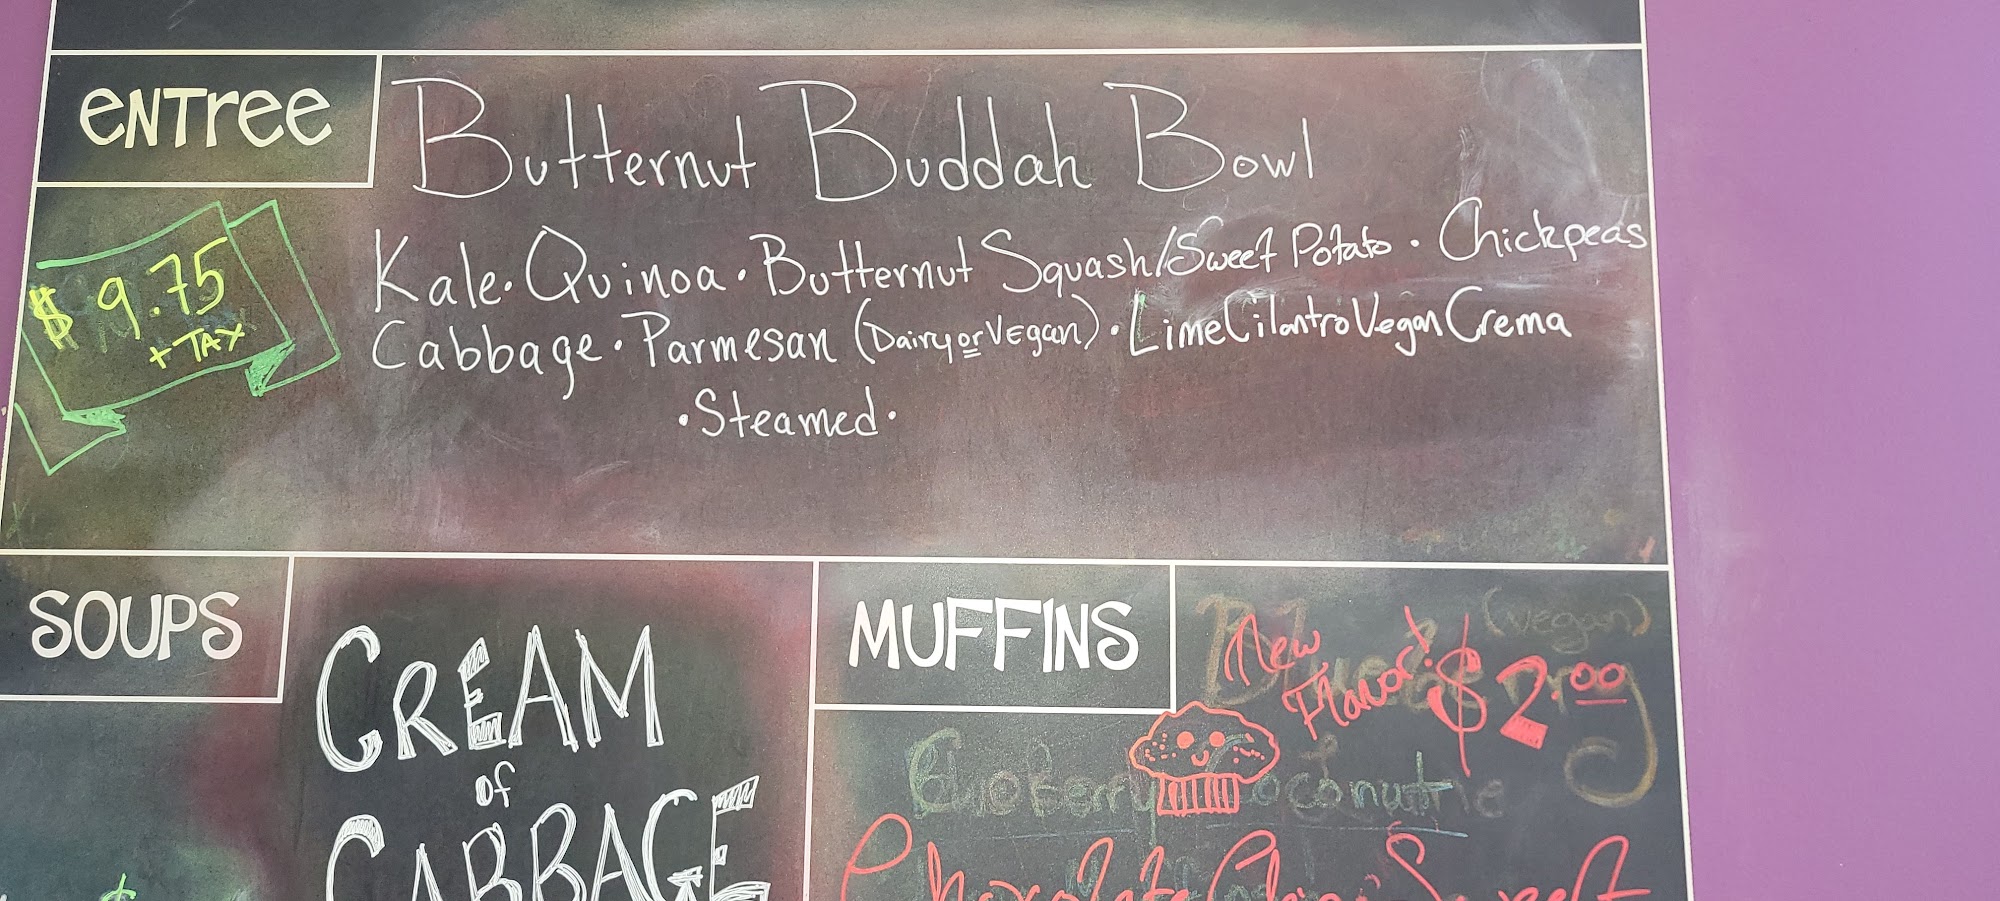 eNTree
Butternut Buddah Bowl
$9.75
+ TAX
Kale · Quinoa · Butternut Squash/Sweet Potato · Chickpeas
Cabbage · Parmesan (Dairy or Vegan) · Lime Cilantro Vegan Crema
· Steamed ·
SOUPS
CREAM
of
CABBAGE
MUFFINS
New
Flavor!
$2.00
(vegan)
Chocolate Chip Sweet